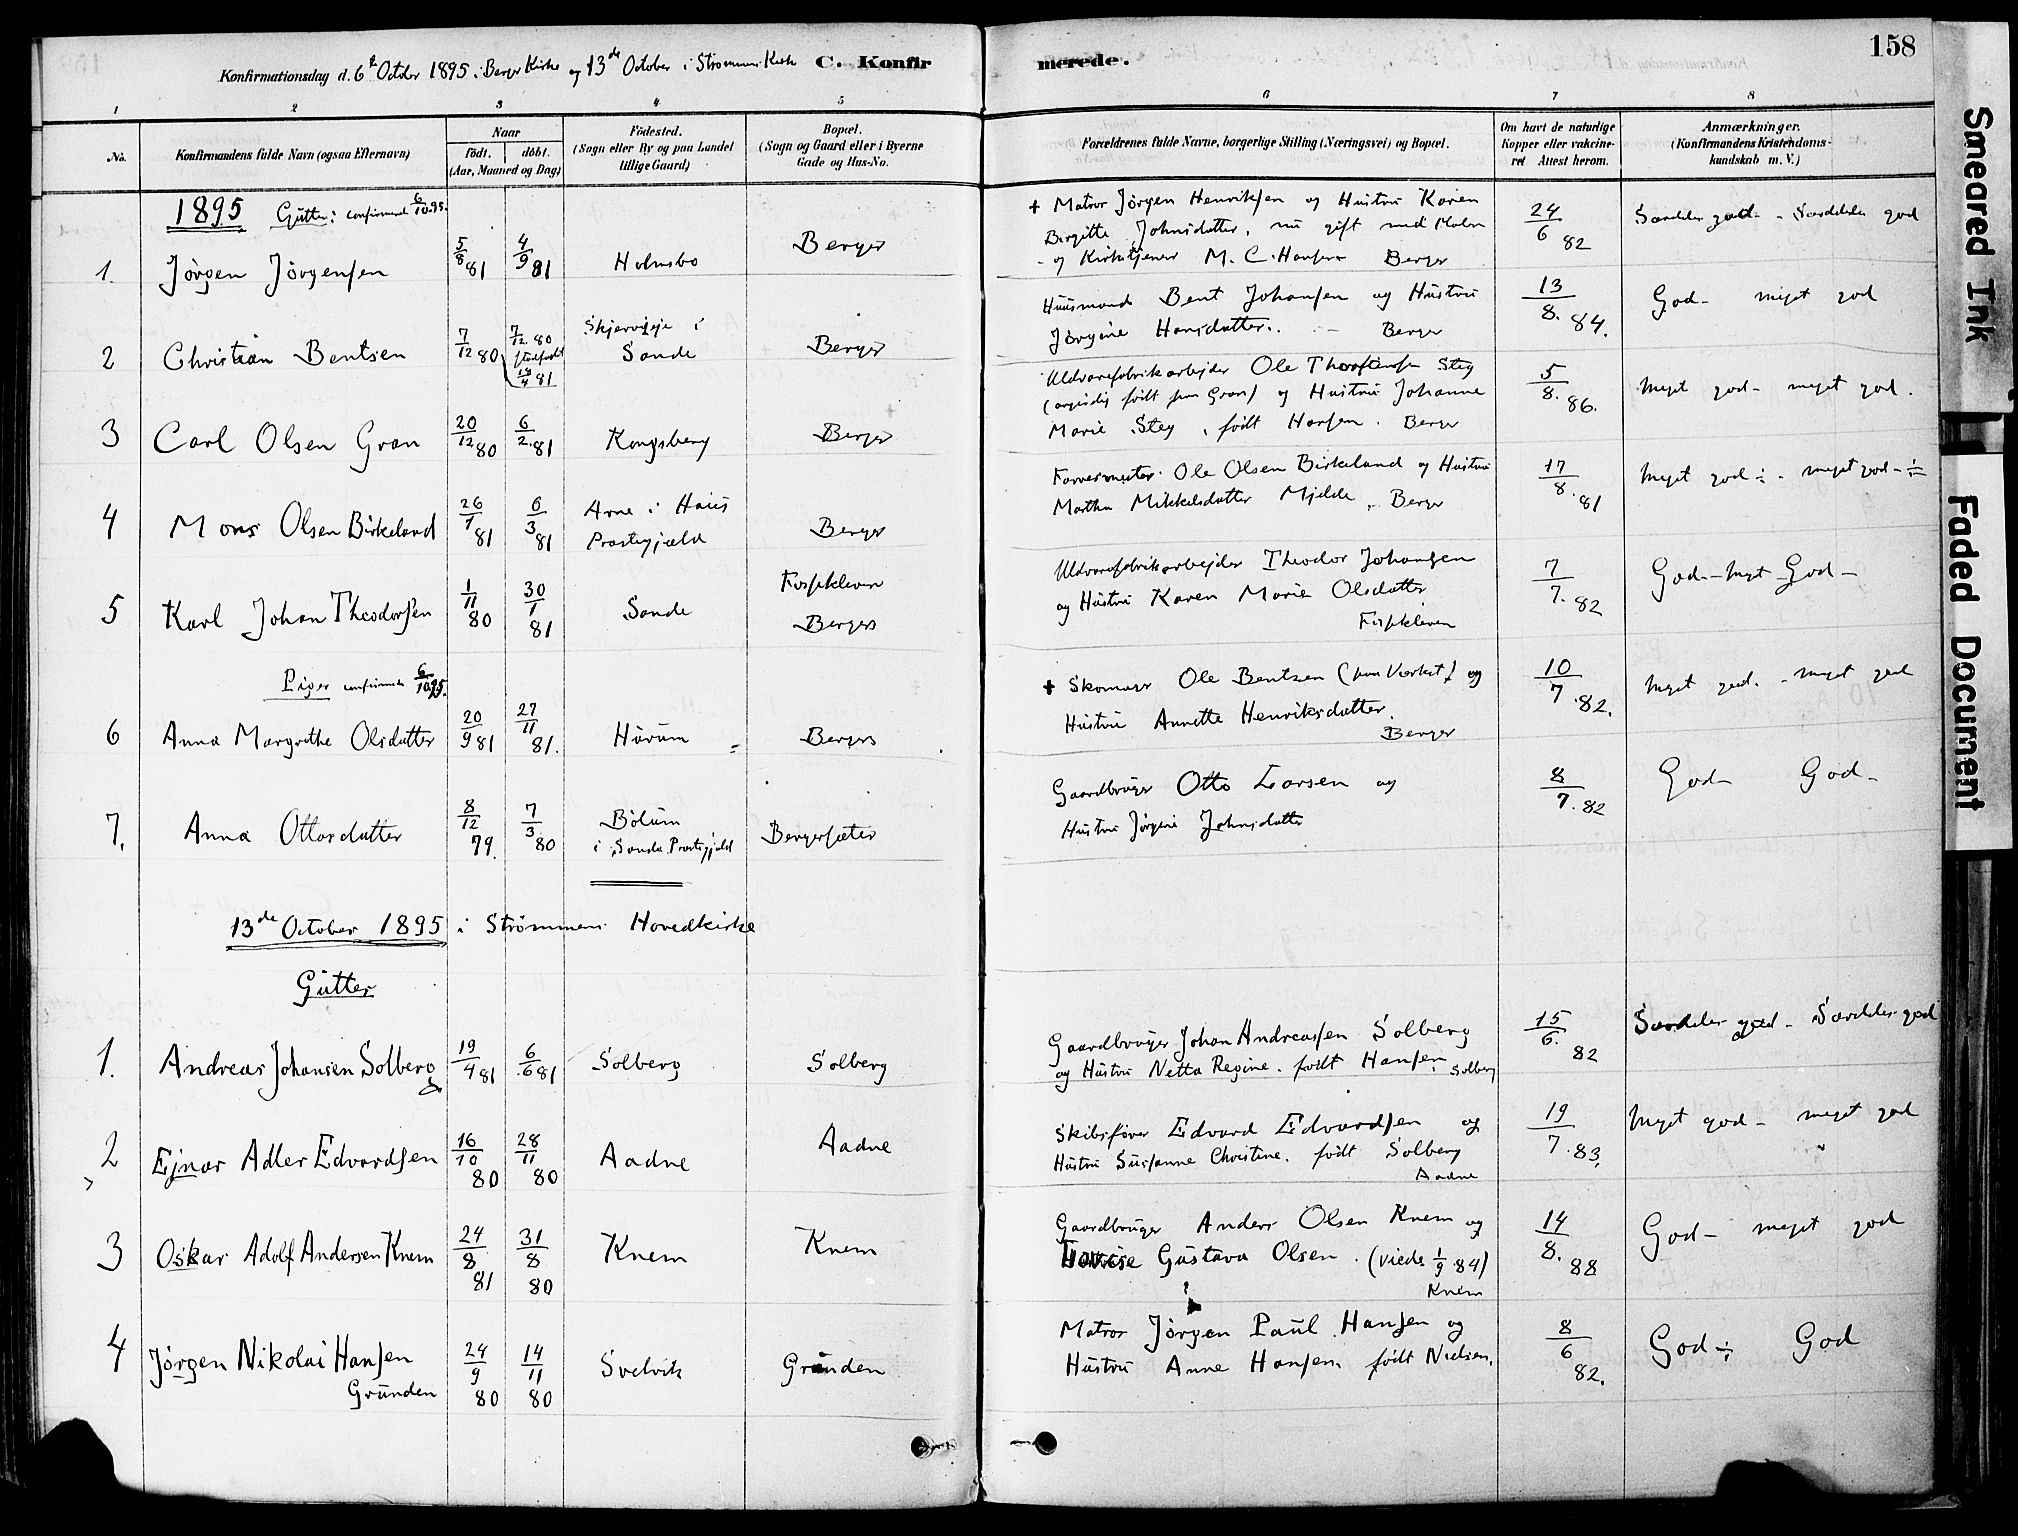 158
Konfirmationsdag d. 6te October 1895 i Berger Kirke og 13de October i Strømmens Kirke C. Konfir merede.
1 2 3 4 5 6 7 8
No. Konfirmandens fulde Navn (ogsaa Efternavn) Naar født. døbt. (Aar, Maaned og Dag) Fødested. (Sogn eller By og paa Landet tillige Gaard) Bopæl. (Sogn og Gaard eller i Byerne Gade og Hus-No.
Forældrenes fulde Navne, borgerlige Stilling (Næringsvei) og Bopæl. Om havt de naturlige Kopper eller vakcineret Attest herom. Anmærkninger. (Konfirmandens Kristendomskundskab m. V.)
1895 Gutter: confirmeret 6/10 95.
1. Jørgen Jørgensen 5/8 81 4/9 81 Holmsbo Berger
+ Matros Jørgen Henriksen og Hustru Karen
Birgitte Johnsdatter, nu gift med Maler
og Kirketjener M. C. Hansen Berger
24/6 82 Særdeles god - Særdeles god
2 Christian Bentsen 7/12 80 7/12 80 14/4 81 Skjervigeje i Sande Berger
Husmand Bent Johansen og Hustru
Jørgine Hansdatter. - Berger
13/8. 84. God - meget god
3 Carl Olsen Gran 20/12 80 6/2. 81 Kongsberg Berger
Uldvarefabrikarbejder Ole Thorstensen Steg
født paa Gran) og Hustru Johanne
Marie Steg, født Hansen. Berger
5/8. 86. Meget god - meget god.
4 Mons Olsen Birkeland 26/1 81 6/3 81 Arne i Haus Præstegjæld Berger
Farvermester Ole Olsen Birkeland og Hustru
Martha Mikkelsdatter Mjelde, Berger
17/8. 81 Meget god ÷ - meget god - ÷
5 Karl Johan Theodorsen 1/11 80 30/1 81 Sande Fossekleven Berger
Uldvarefabrikarbejder Theodor Johansen
og Hustru Karen Marie Olsdatter
Fossekleven
7/7. 82 God - Mgt God -
Piger confirmerede 6/10 95.
6 Anna Margrethe Olsdatter 20/9 81 27/11 81. Hurum = Berger
+ Skomager Ole Bentzen (paa Værket) og
Hustru Annette Henriksdatter.
Berger
10/7 .82. Meget god. - meget god
7. Anna Ottosdatter 8/12 79. 7/3. 80 Bølum i Sande Præstegjæld Bergersæter
Gaardbruger Otto Larsen og
Hustru Jørgine Johnsdatter
8/7. 82 God - God -
13de October 1895 i Strømmens Hovedkirke
Gutter
1. Andreas Johansen Solberg 19/4 81 6/6 81 Solberg Solberg
Gaardbruger Johan Andreassen Solberg
og Hustru Netta Regine. født Hansen. Solberg
15/6. 82 Særdeles god - Særdeles god
2 Ejnar Adler Edvardsen 16/10 80 28/11 80 Aadne Aadne
Skibsfører Edvard Edvardsen og
Hustru Susanne Christine. født Solberg
Aadne
19/7. 83. Meget god - meget god
3 Oskar Adolf Andersen Knem 24/8 81 31/8 80 Knem Knem
Gaardbruger Anders Olsen Knem og
Gustava Olsen. (viede 1/9 84)
Knem
14/8. 88 God - meget god
4 Jørgen Nikolai Hansen Grunden 24/9 80 14/11 80 Svelvik Grunden
Matros Jørgen Paul Hansen og
Hustru Anne Hansen, født Nielsen.
8/6 82. God ÷ God
Smeared Ink
Faded Document